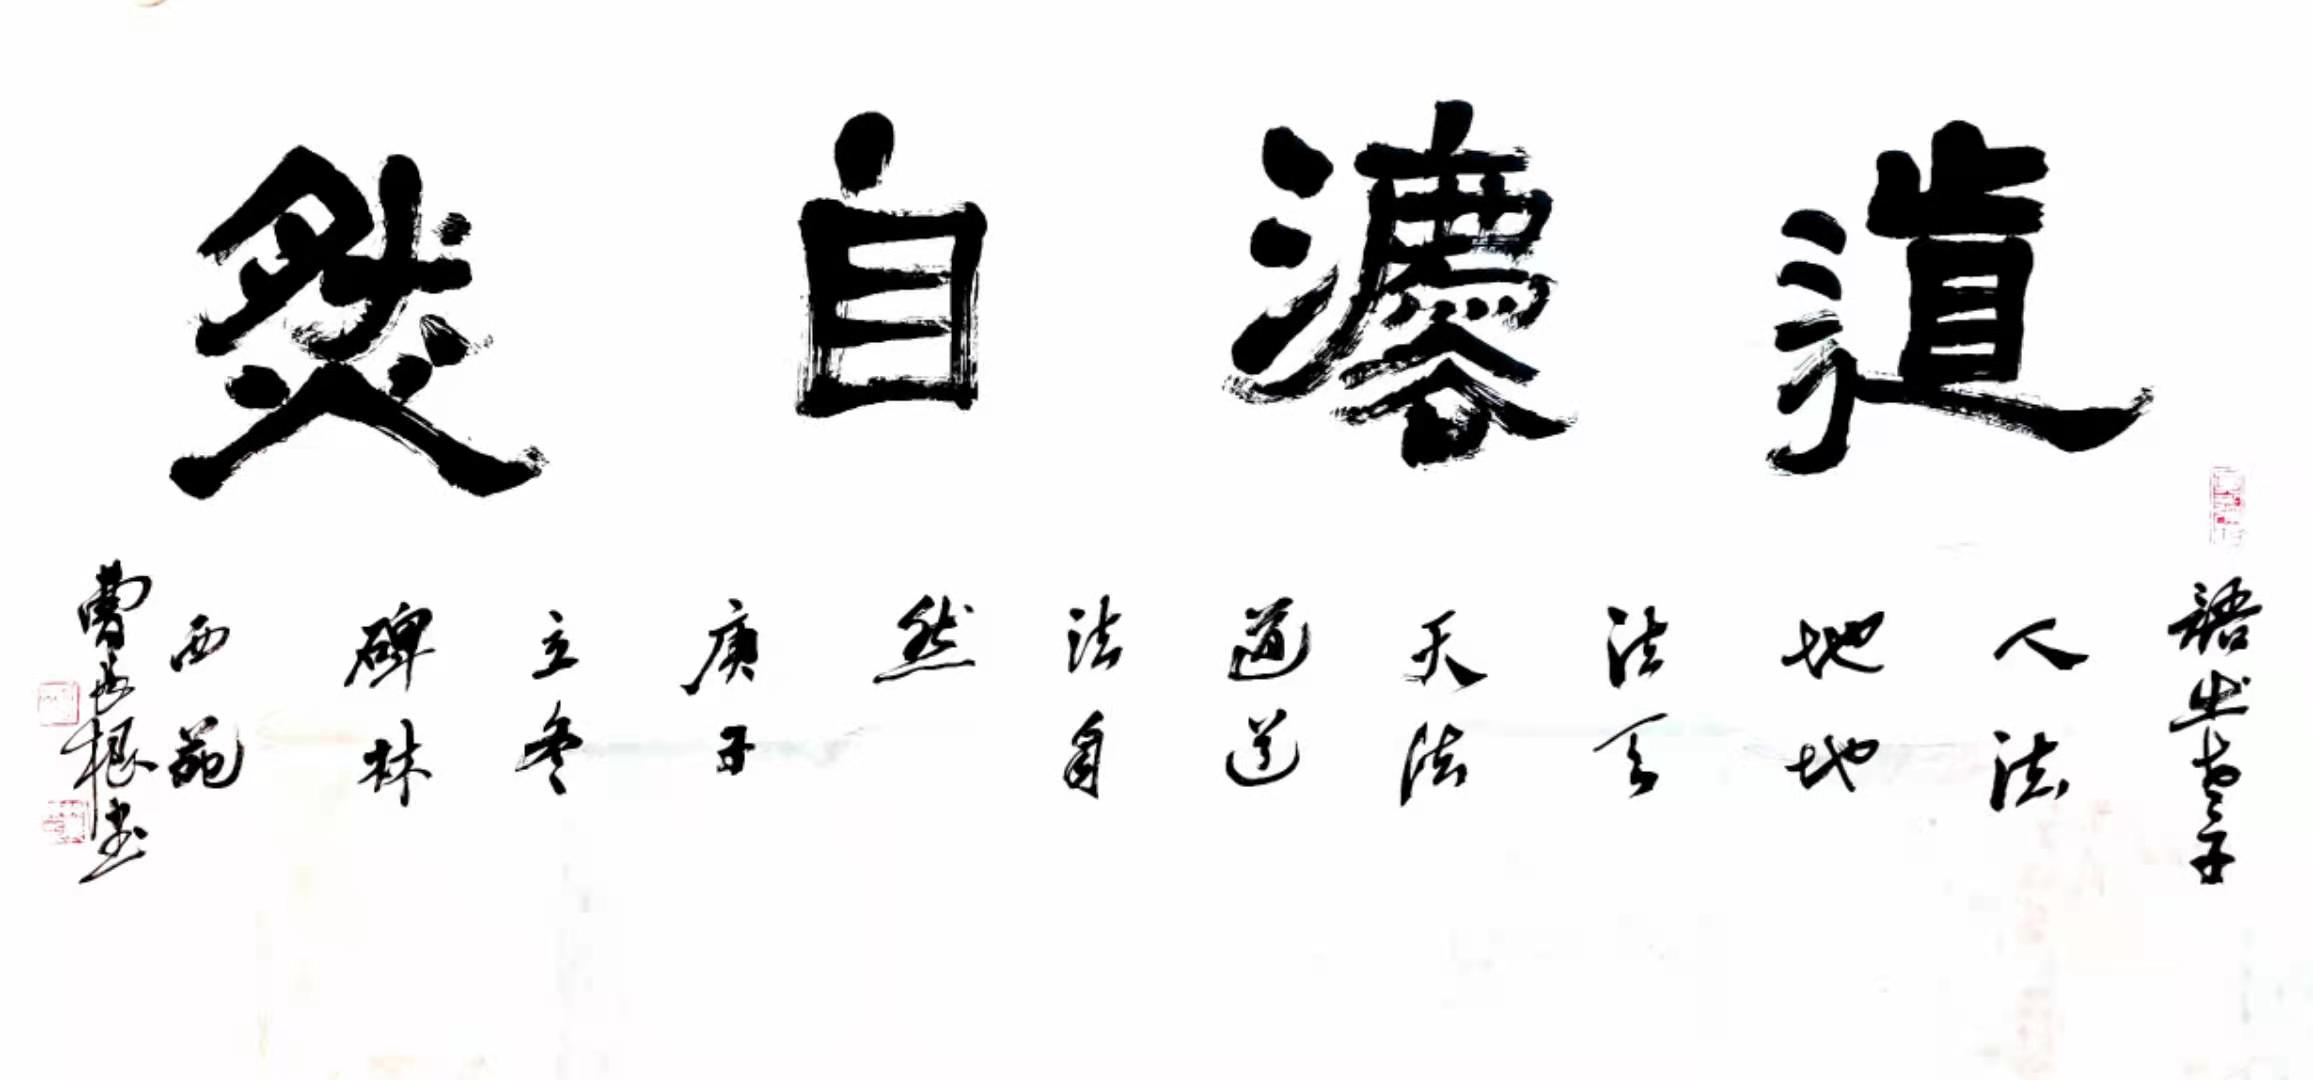 道灋自然
語出老子
人法
地地
法天
天法
道道
法自
然
庚子
立冬
碑林
西苑
曹根书